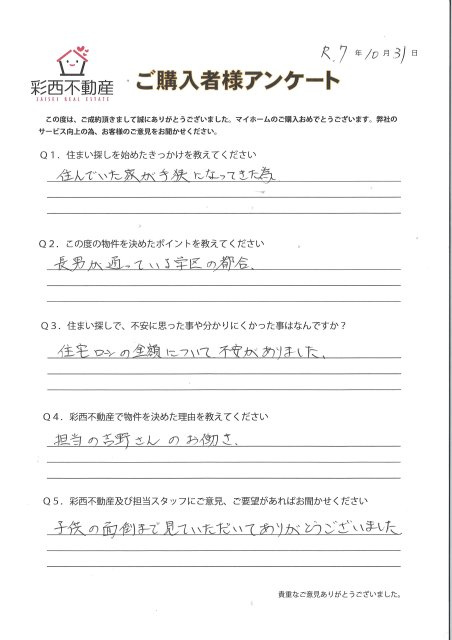 R.7年10月31日
彩西不動産
SAISEI REAL ESTATE
ご購入者様アンケート
この度は、ご成約頂きまして誠にありがとうございました。マイホームのご購入おめでとうございます。弊社の
サービス向上の為、お客様のご意見をお聞かせください。
Q1．住まい探しを始めたきっかけを教えてください
住んでいた家が手狭になってきた為
Q2．この度の物件を決めたポイントを教えてください
長男が通っている学区の都合、
Q3．住まい探しで、不安に思った事や分かりにくかった事はなんですか？
住宅ロンの金額について不安がありました、
Q4．彩西不動産で物件を決めた理由を教えてください
担当の吉野さんのお働き、
Q5．彩西不動産及び担当スタッフにご意見、ご要望があればお聞かせください
子供の面倒まで見ていただいてありがとうございました
貴重なご意見ありがとうございました。